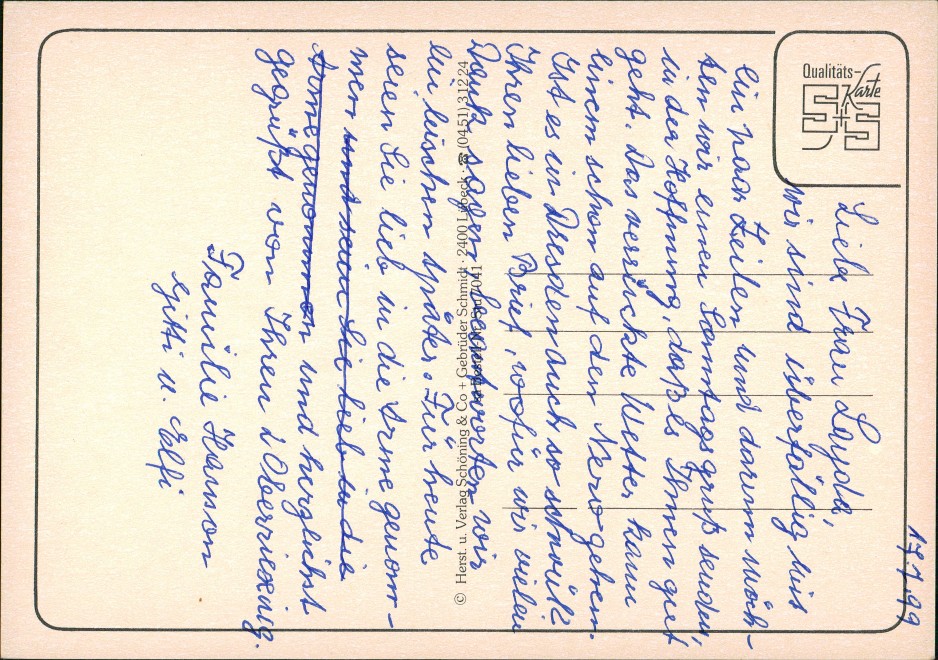 17.7.99
Liebe Frau Layda,
wir sind überfällig mit
ein paar Zeilen und darum möch-
ten wir einen Sonntagsgruß senden,
in der Hoffnung, daß es Ihnen gut
geht. Das verrückte Wetter kann
einem schon auf den Nerv gehen.
Ist es in Dresden auch so schwül?
Ihren lieben Brief, wofür wir vielen
Dank sagen, beantworten wir
ein bischen später. Für heute
seien Sie lieb in die Arme genom-
men und seien Sie lieb in die
Arme genommen und herzlichst
gegrüßt von Ihren 2 Oberrixing.
Familie Hamon
Gitti u. Elfi
Qualitäts-
Karte
S+S
© Herst. u. Verlag Schöning & Co + Gebrüder Schmidt · 2400 Lübeck · ☎ (0451) 31224